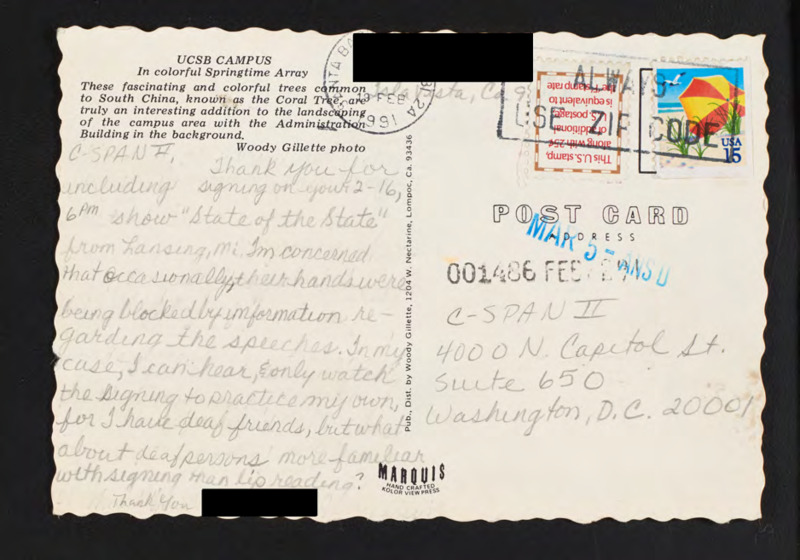 UCSB CAMPUS
In colorful Springtime Array
These fascinating and colorful trees common
to South China, known as the Coral Tree, are
truly an interesting addition to the landscaping
of the campus area with the Administration
Building in the background.
Woody Gillette photo
C-SPAN II,
Thank you for
including signing on your 2-16,
6PM show "State of the State"
from Lansing, Mi. I'm concerned
that occasionally, their hands were
being blocked by information re-
garding the speeches. In my
case, I can hear, & only watch
the signing to practice my own,
for I have deaf friends, but what
about deaf persons more familiar
with signing than lip reading?
Thank You
Pub., Dist. by Woody Gillette, 1204 W. Nectarine, Lompoc, Ca. 93436
MARQUIS
HAND CRAFTED
KOLOR VIEW PRESS
Isla Vista, Ca 9
SANTA BA
FEB
1991
This U.S. stamp,
along with 25¢
of additional
postage,
is equivalent to
stamp rate
ALWAYS
USE ZIP CODE
USA
15
POST CARD
ADDRESS
MAR 5 - ANS'D
001486 FEB
C-SPAN II
400 N. Capitol St.
Suite 650
Washington, D.C. 20001